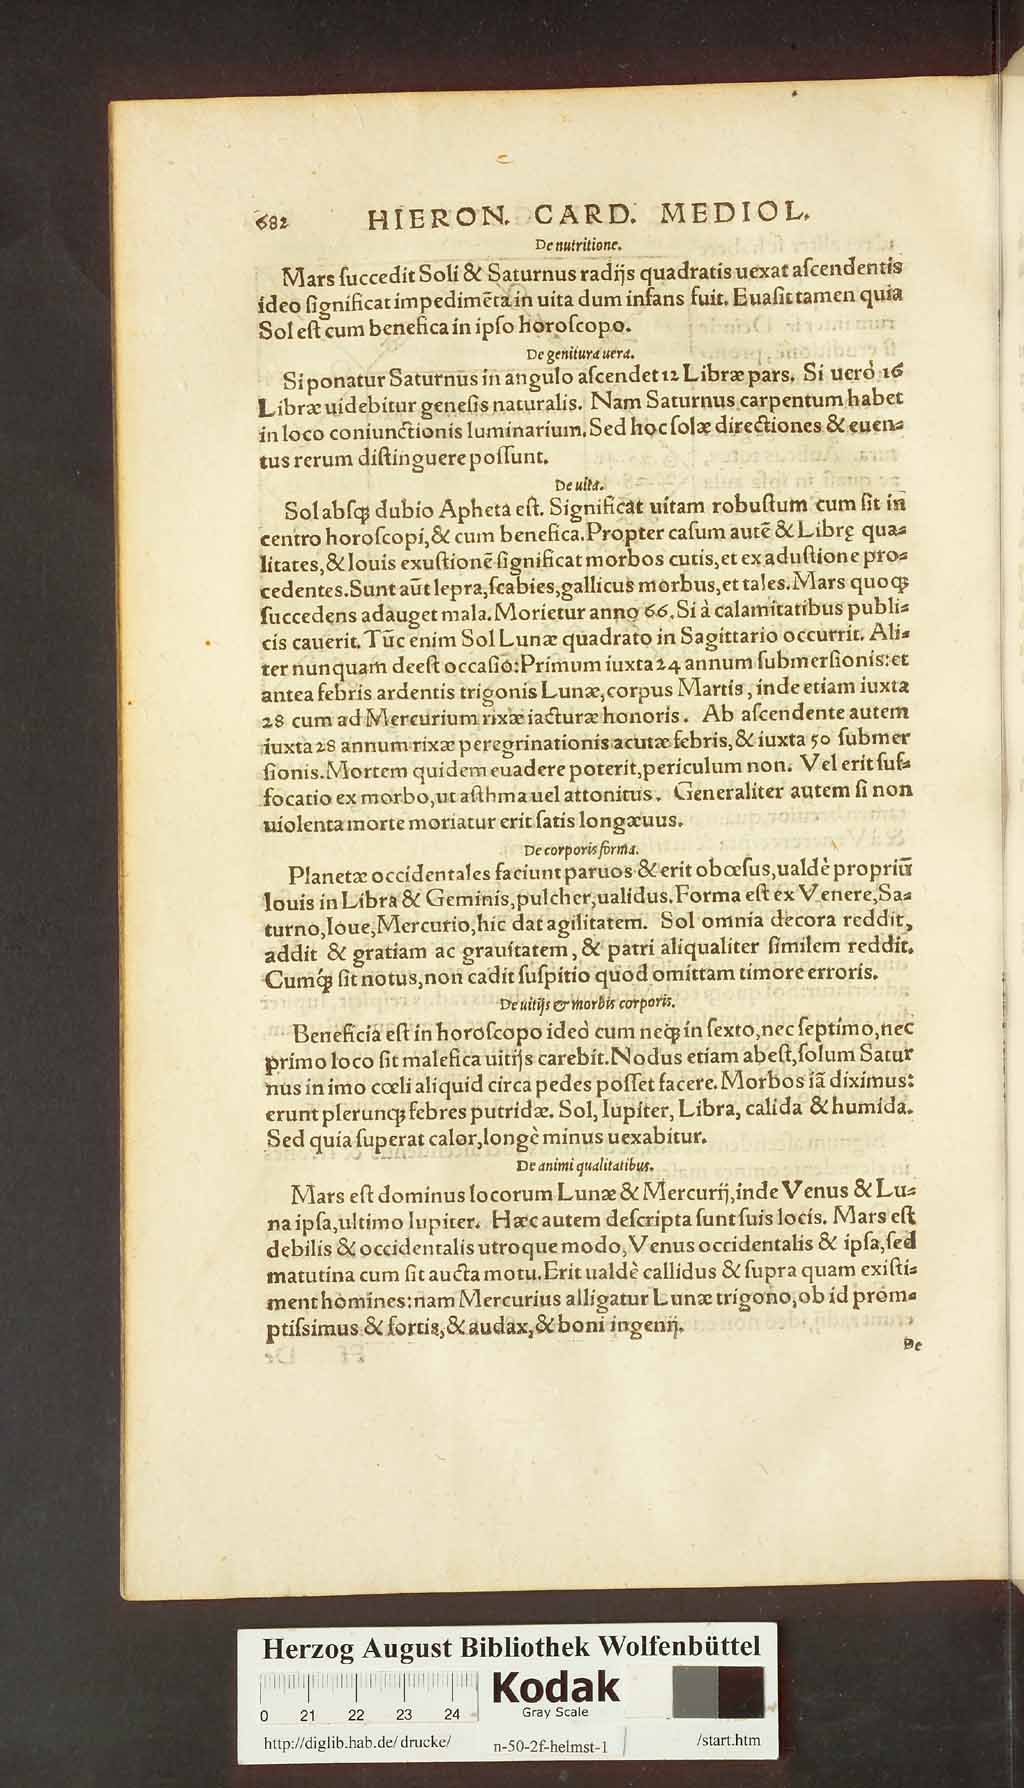 682 HIERON. CARD. MEDIOL.
De nutritione.
Mars ſuccedit Soli & Saturnus radijs quadratis uexat aſcendentis
ideo ſignificat impedimēta in uita dum infans fuit. Euaſit tamen quia
Sol eſt cum benefica in ipſo horoſcopo.
De genitura uera.
Si ponatur Saturnus in angulo aſcendet 12 Libræ pars. Si uerò 16
Libræ uidebitur geneſis naturalis. Nam Saturnus carpentum habet
in loco coniunctionis luminarium. Sed hoc ſolæ directiones & euen-
tus rerum diſtinguere poſſunt.
De uita.
Sol abſq; dubio Apheta eſt. Significat uitam robuſtum cum ſit in
centro horoſcopi, & cum benefica. Propter caſum autē & Librę qua-
litates, & Iouis exuſtionē ſignificat morbos cutis, et ex aduſtione pro-
cedentes. Sunt aūt lepra, ſcabies, gallicus morbus, et tales. Mars quoq;
ſuccedens adauget mala. Morietur anno 66. Si à calamitatibus publi-
cis cauerit. Tūc enim Sol Lunæ quadrato in Sagittario occurrit. Ali-
ter nunquam deeſt occaſio: Primum iuxta 24 annum ſubmerſionis: et
antea febris ardentis trigonis Lunæ, corpus Martis, inde etiam iuxta
28 cum ad Mercurium rixæ iacturæ honoris. Ab aſcendente autem
iuxta 28 annum rixæ peregrinationis acutæ febris, & iuxta 50 ſubmer
ſionis. Mortem quidem euadere poterit, periculum non. Vel erit ſuf-
focatio ex morbo, ut aſthma uel attonitus. Generaliter autem ſi non
uiolenta morte moriatur erit ſatis longæuus.
De corporis forma.
Planetæ occidentales faciunt paruos & erit obœſus, ualdè propriū
Iouis in Libra & Geminis, pulcher, ualidus. Forma eſt ex Venere, Sa-
turno, Ioue, Mercurio, hic dat agilitatem. Sol omnia decora reddit,
addit & gratiam ac grauitatem, & patri aliqualiter ſimilem reddit.
Cumq́; ſit notus, non cadit ſuſpitio quod omittam timore erroris.
De uitijs & morbis corporis.
Beneficia eſt in horoſcopo ideò cum neq; in ſexto, nec ſeptimo, nec
primo loco ſit malefica uitijs carebit. Nodus etiam abeſt, ſolum Satur
nus in imo cœli aliquid circa pedes poſſet facere. Morbos iā diximus:
erunt plerunq; febres putridæ. Sol, Iupiter, Libra, calida & humida.
Sed quia ſuperat calor, longè minus uexabitur.
De animi qualitatibus.
Mars eſt dominus locorum Lunæ & Mercurij, inde Venus & Lu-
na ipſa, ultimo Iupiter. Hæc autem deſcripta ſunt ſuis locis. Mars eſt
debilis & occidentalis utroque modo, Venus occidentalis & ipſa, ſed
matutina cum ſit aucta motu. Erit ualdè callidus & ſupra quam exiſti-
ment homines: nam Mercurius alligatur Lunæ trigono, ob id prom-
ptiſsimus & fortis, & audax, & boni ingenij.
De
Herzog August Bibliothek Wolfenbüttel
Kodak
Gray Scale
0 21 22 23 24
http://diglib.hab.de/drucke/ n-50-2f-helmst-1 /start.htm